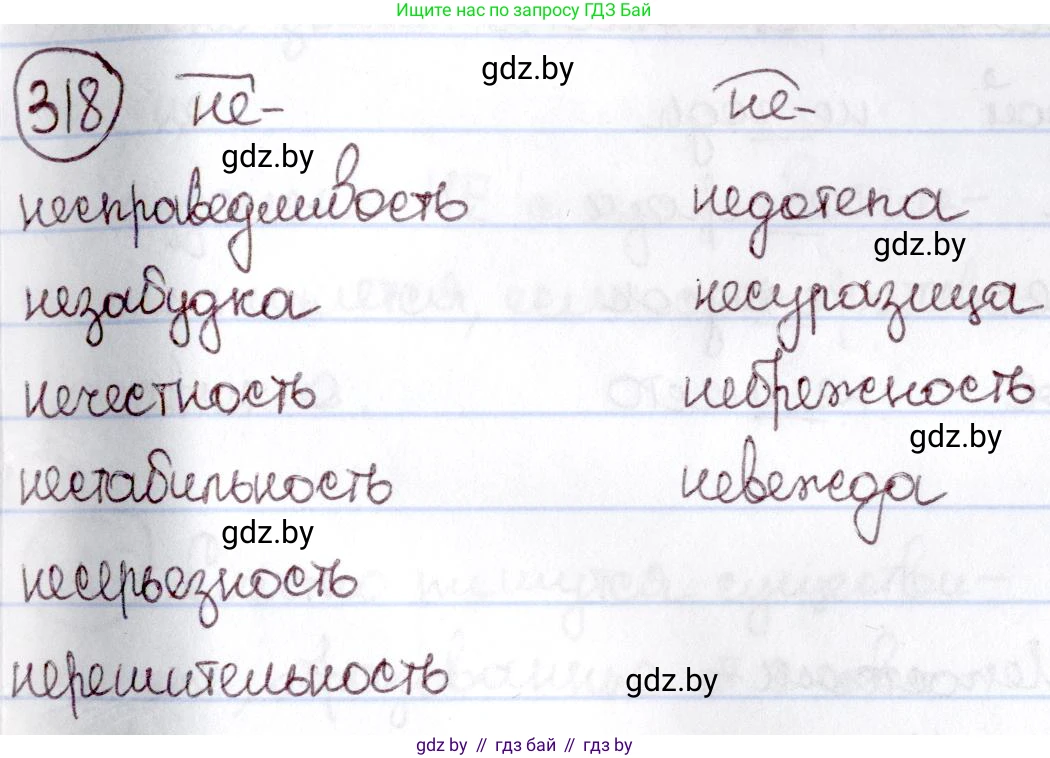 Ищите нас по запросу ГДЗ Бай
318 не- не-
gdz.by
gdz.by
несправедливость недотепа
gdz.by
незабудка несуразица
нечестность небрежность
gdz.by
нестабильность невежда
gdz.by
несерьезность
нерешительность
gdz.by
gdz by // гдз бай // гдз by